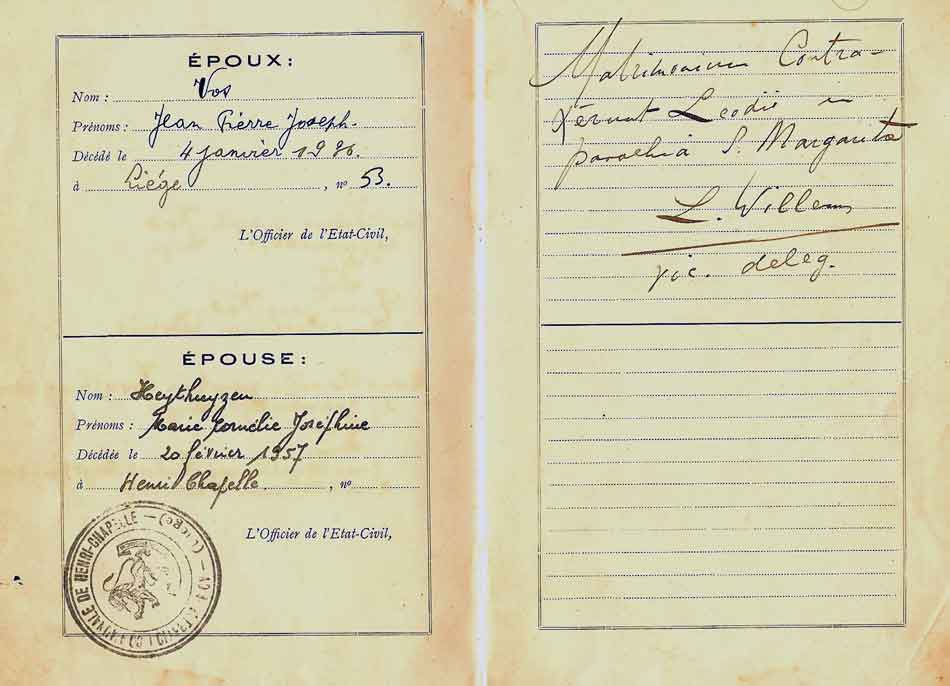 ÉPOUX:
Nom : Vos
Prénoms : Jean Pierre Joseph.
Décédé le 4 janvier 19 6.
à Liége , nº 53.
L'Officier de l'Etat-Civil,
ÉPOUSE:
Nom : Heythuyzen
Prénoms : Marie Cornélie Joséphine
Décédée le 20 février 1957
à Henri Chapelle , nº
L'Officier de l'Etat-Civil,
ALE DE HENRI-CHAPELLE — (Liége) —
Matrimonium Contra-
xerunt Leodii in
parochia S. Margarita
L. Willems
vic. deleg.